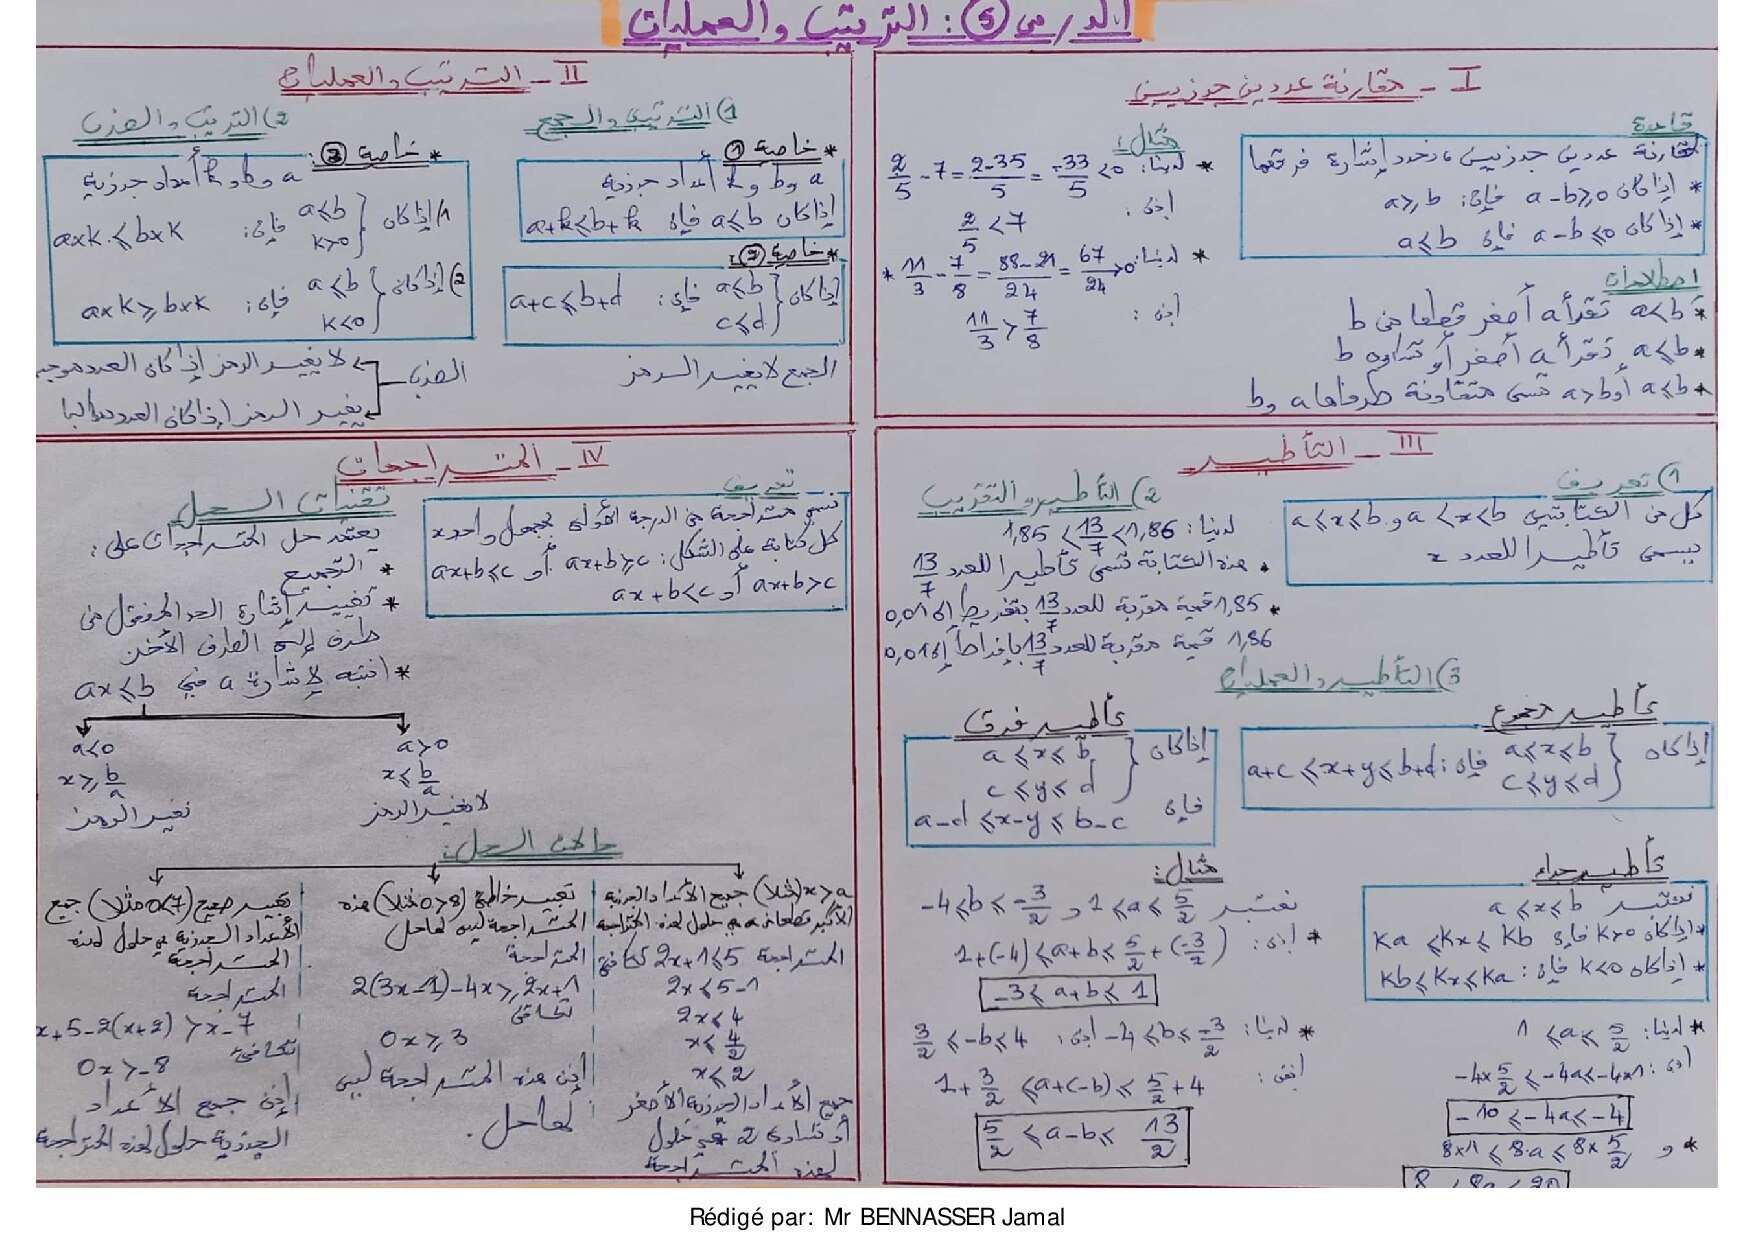 الدرس 5: الترتيب والعمليات
I - مقارنة عددين جذريين
قاعدة
مقارنة عددين جذريين، نحدد إشارة فرقهما
* إذا كان a-b⩾0 فإن: a⩾b
* إذا كان a-b⩽0 فإن a⩽b
مثال:
* لدينا: 2/5 - 7 = (2-35)/5 = -33/5 < 0
إذن:
2/5 < 7
* لدينا: 11/3 - 7/8 = (88-21)/24 = 67/24 > 0
إذن:
11/3 > 7/8
اصطلاحات
* a<b تقرأ a أصغر قطعا من b
* a⩽b تقرأ a أصغر أو تساوي b
* a⩽b أو a>b تسمى متفاوتة طرفاها a و b
II - الترتيب والعمليات
1) الترتيب والجمع
* خاصية 1:
a و b و k أعداد جذرية
إذا كان a⩽b فإن a+k⩽b+k
* خاصية 2:
إذا كان { a⩽b
c⩽d } فإن: a+c⩽b+d
الجمع لا يغير الرمز
2) الترتيب والضرب
* خاصية 3:
a و b و k أعداد جذرية
1) إذا كان { a⩽b
k>0 } فإن: a×k⩽b×k
2) إذا كان { a⩽b
k<0 } فإن: a×k⩾b×k
الضرب
لا يغير الرمز إذا كان العدد موجب
يغير الرمز إذا كان العدد سالبا
III - التأطير
1) تعريف
كل من الكتابتين a<x<b و a⩽x⩽b
يسمى تأطيرا للعدد x
2) التأطير والتقريب
لدينا: 1,85 < 13/7 < 1,86
* هذه الكتابة تسمى تأطيرا للعدد 13/7
* 1,85 قيمة مقربة للعدد 13/7 بتفريط إلى 0,01
1,86 قيمة مقربة للعدد 13/7 بإفراط إلى 0,01
3) التأطير والعمليات
تأطير مجموع
إذا كان { a⩽x⩽b
c⩽y⩽d } فإن: a+c⩽x+y⩽b+d
تأطير فرق
إذا كان { a⩽x⩽b
c⩽y⩽d }
فإن a-d⩽x-y⩽b-c
تأطير جداء
نعتبر a⩽x⩽b
* إذا كان k>0 فإن Ka⩽Kx⩽Kb
* إذا كان k<0 فإن: Kb⩽Kx⩽Ka
* لدينا: 1⩽a⩽5/2
إذن: -4×5/2⩽-4a⩽-4×1
-10⩽-4a⩽-4
* و 8×1⩽8·a⩽8×5/2
8⩽8a⩽20
مثال:
نعتبر 1⩽a⩽5/2 و -4⩽b⩽-3/2
* إذن: 1+(-4)⩽a+b⩽5/2+(-3/2)
-3⩽a+b⩽1
* لدينا: -4⩽b⩽-3/2 إذن: 3/2⩽-b⩽4
إذن: 1+3/2⩽a+(-b)⩽5/2+4
5/2⩽a-b⩽13/2
IV - المتراجحات
تعريف
نسمي متراجحة من الدرجة الأولى بمجهول واحد x
كل كتابة على الشكل: ax+b⩾c أو ax+b⩽c
ax+b>c أو ax+b<c
تقنيات الحل
يعتمد حل المتراجحات على:
* التجميع
* تغيير إشارة الحد المنقول من
طرف إلى الطرف الآخر
* انتبه لإشارة a في ax⩽b
a>0
x⩽b/a
لا نغير الرمز
a<0
x⩾b/a
نغير الرمز
حالات الحل:
x>a (مثلا) جميع الأعداد الجذرية
الأكبر قطعا من a هي حلول لهذه المتراجحة
المتراجحة 2x+1⩽5 تكافئ
2x⩽5-1
2x⩽4
x⩽4/2
x⩽2
جميع الأعداد الجذرية الأصغر
أو تساوي 2 هي حلول
لهذه المتراجحة
تعبير خاطئ (0>8 مثلا) هذه
المتراجحة ليس لها حل
المتراجحة
2(3x-1)-4x⩾2x+1
تكافئ
0x⩾3
إذن هذه المتراجحة ليس
لها حل.
تعبير صحيح (0<7 مثلا) جميع
الأعداد الجذرية هي حلول لهذه
المتراجحة
المتراجحة
x+5-2(x+2)>x-7
تكافئ
0x>-8
إذن جميع الأعداد
الجذرية حلول لهذه المتراجحة
Rédigé par: Mr BENNASSER Jamal